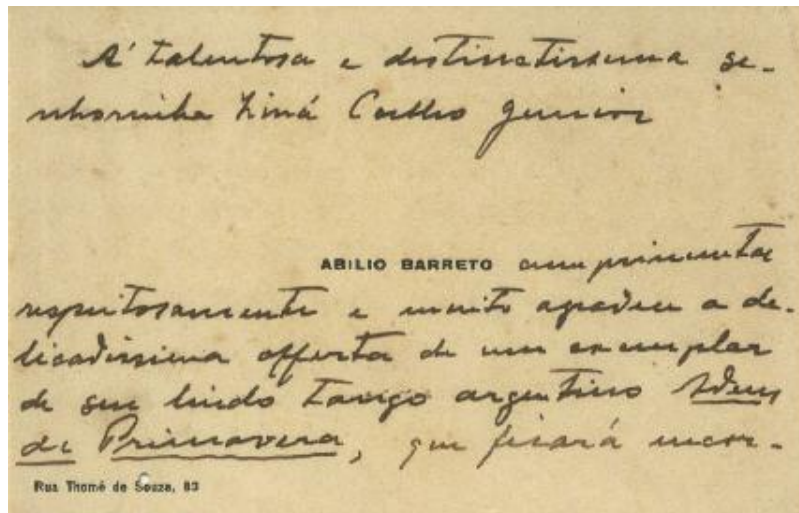 A' talentosa e distinctissima se-
nhorinha Ziná Coelho Junior
ABILIO BARRETO cumprimenta
respeitosamente e muito agradece a de-
licadissima offerta de um exemplar
de seu lindo tango argentino Adeus
de Primavera, que ficará incor-
Rua Thomé de Souza, 83